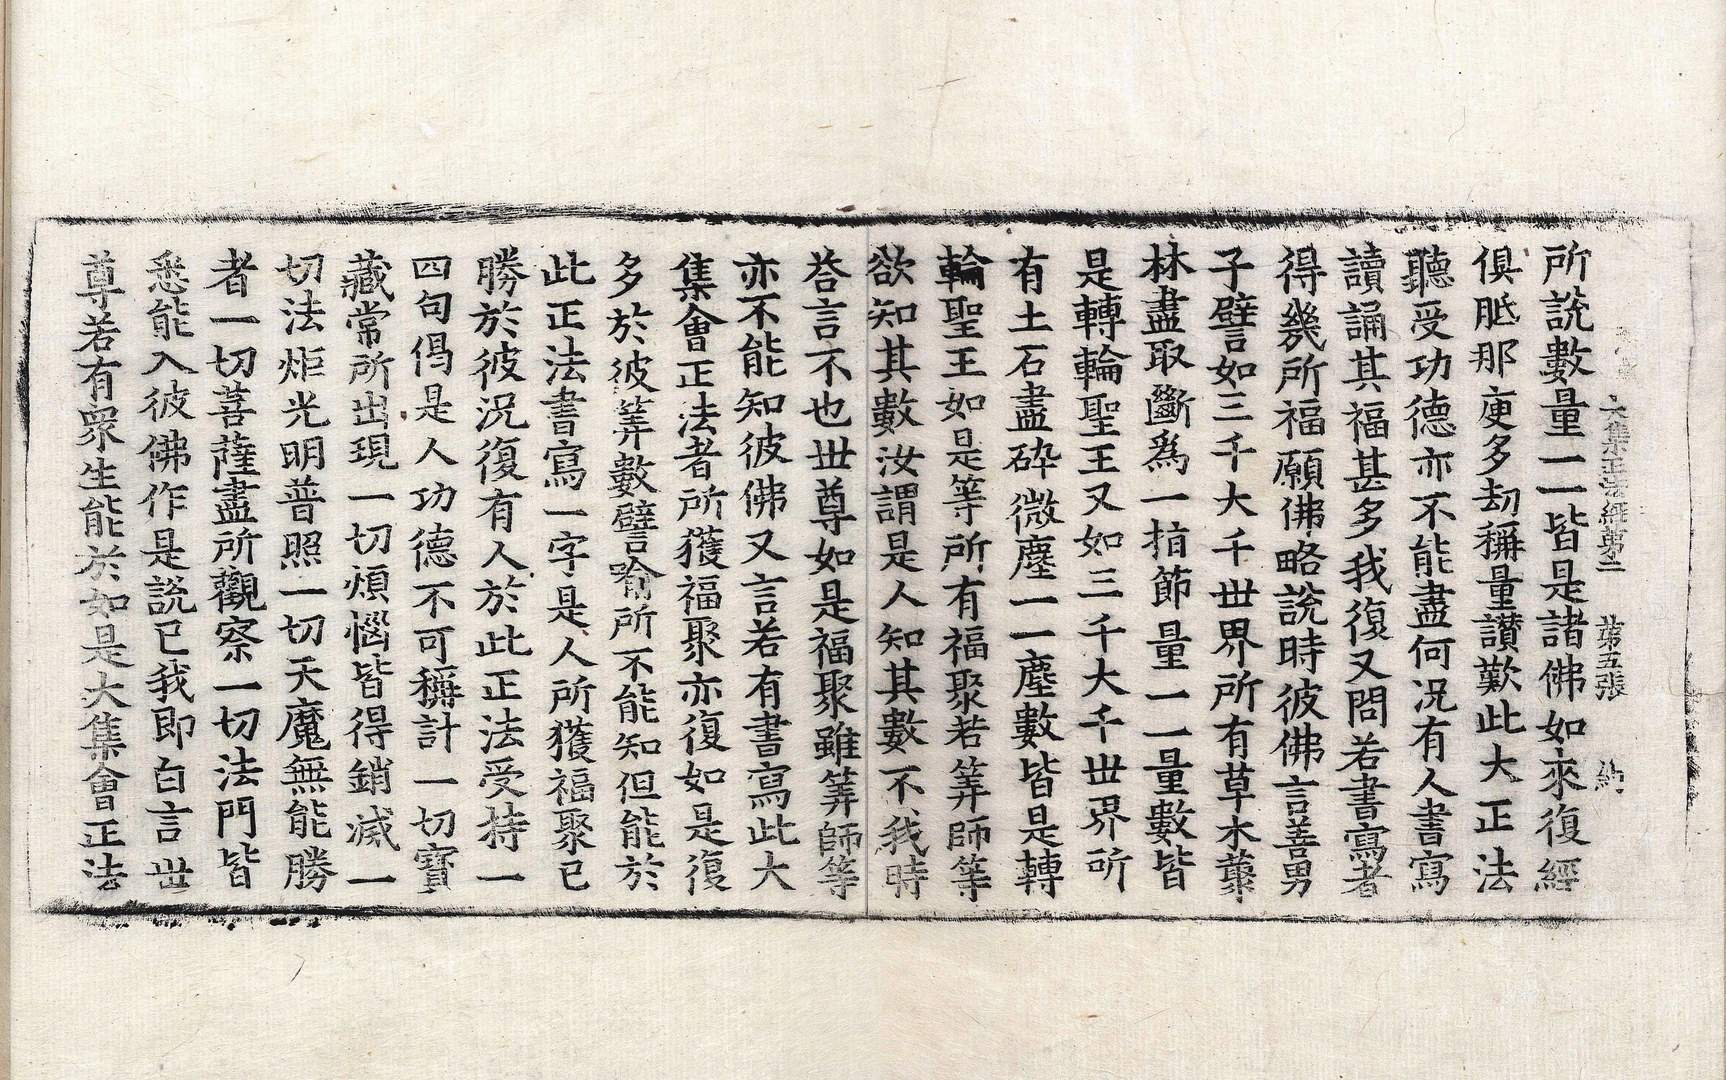 大集正法經第二 第五張 納
所說數量一一皆是諸佛如來復經
俱胝那庾多劫稱量讃歎此大正法
聽受功德亦不能盡何况有人書寫
讀誦其福甚多我復又問若書寫者
得幾所福願佛略說時彼佛言善男
子譬如三千大千世界所有草木藂
林盡取斷爲一指節量一一量數皆
是轉輪聖王又如三千大千世界所
有土石盡碎微塵一一塵數皆是轉
輪聖王如是等所有福聚若筭師等
欲知其數汝謂是人知其數不我時
荅言不也世尊如是福聚雖筭師等
亦不能知彼佛又言若有書寫此大
集會正法者所獲福聚亦復如是復
多於彼筭數譬喻所不能知但能於
此正法書寫一字是人所獲福聚已
勝於彼况復有人於此正法受持一
四句偈是人功德不可稱計一切寶
藏常所出現一切煩惱皆得銷滅一
切法炬光明普照一切天魔無能勝
者一切菩薩盡所觀察一切法門皆
悉能入彼佛作是說已我即白言世
尊若有眾生能於如是大集會正法